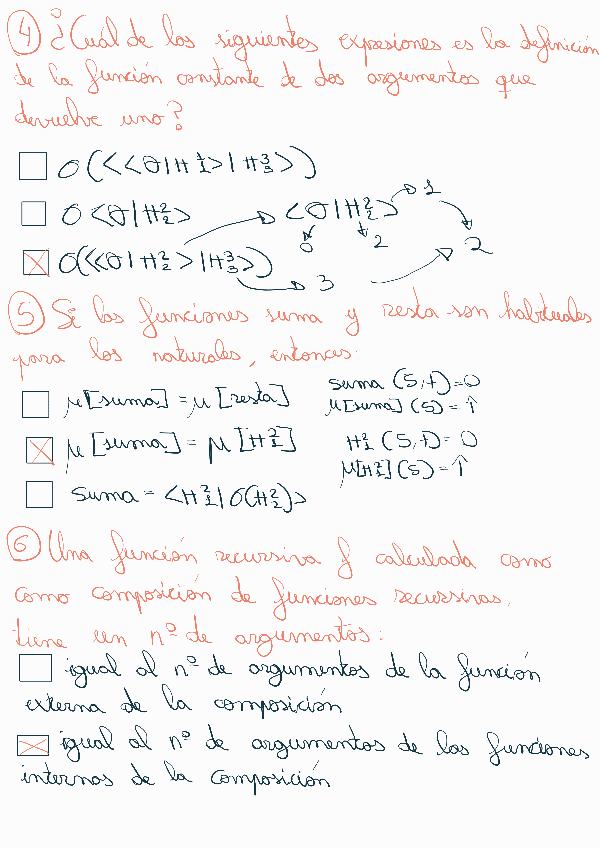 ④ ¿Cuál de las siguientes expresiones es la definición
de la función constante de dos argumentos que
devuelve uno?
σ(<<σ|π¹₁>|π³₃>)
σ<σ|π²₂> <σ|π²₂> → 1
0 2 2
σ(<<σ|π²₂>|π³₃>) → 3
⑤ Si las funciones suma y resta son habituales
para los naturales, entonces:
μ[suma] = μ[resta] suma (5,t)=0
μ[suma](5)=↑
μ[suma] = μ[π²₁] π²₁ (5,t)=0
μ[π²₁](5)=↑
suma = <π²₁|σ(π²₂)>
⑥ Una función recursiva f calculada como
como composición de funciones recursivas,
tiene un nº de argumentos:
igual al nº de argumentos de la función
externa de la composición
igual al nº de argumentos de las funciones
internas de la composición